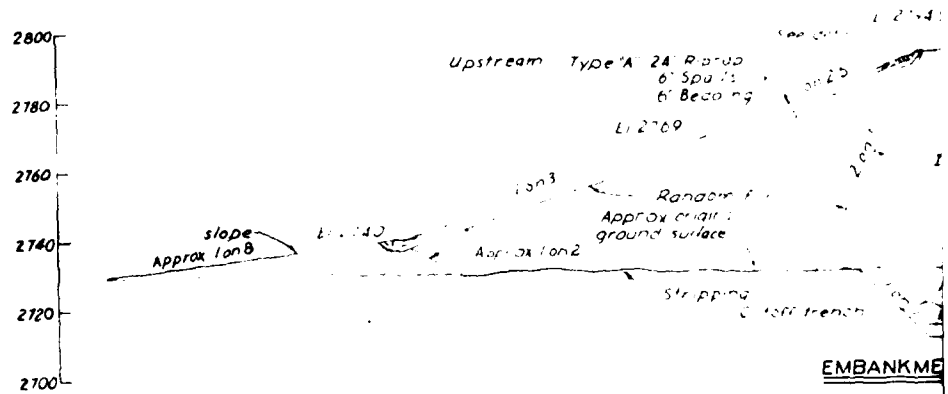 2800
2780
2760
2740
2720
2700
Upstream Type "A" 24" Riprap
6" Spalls
6" Bedding
1 on 2.5
El. 2769
2 on 1
1 on 3
Random
Approx
ground surface
slope
Approx 1 on 8
Approx 1 on 2
Stripping
trench
EMBANKME